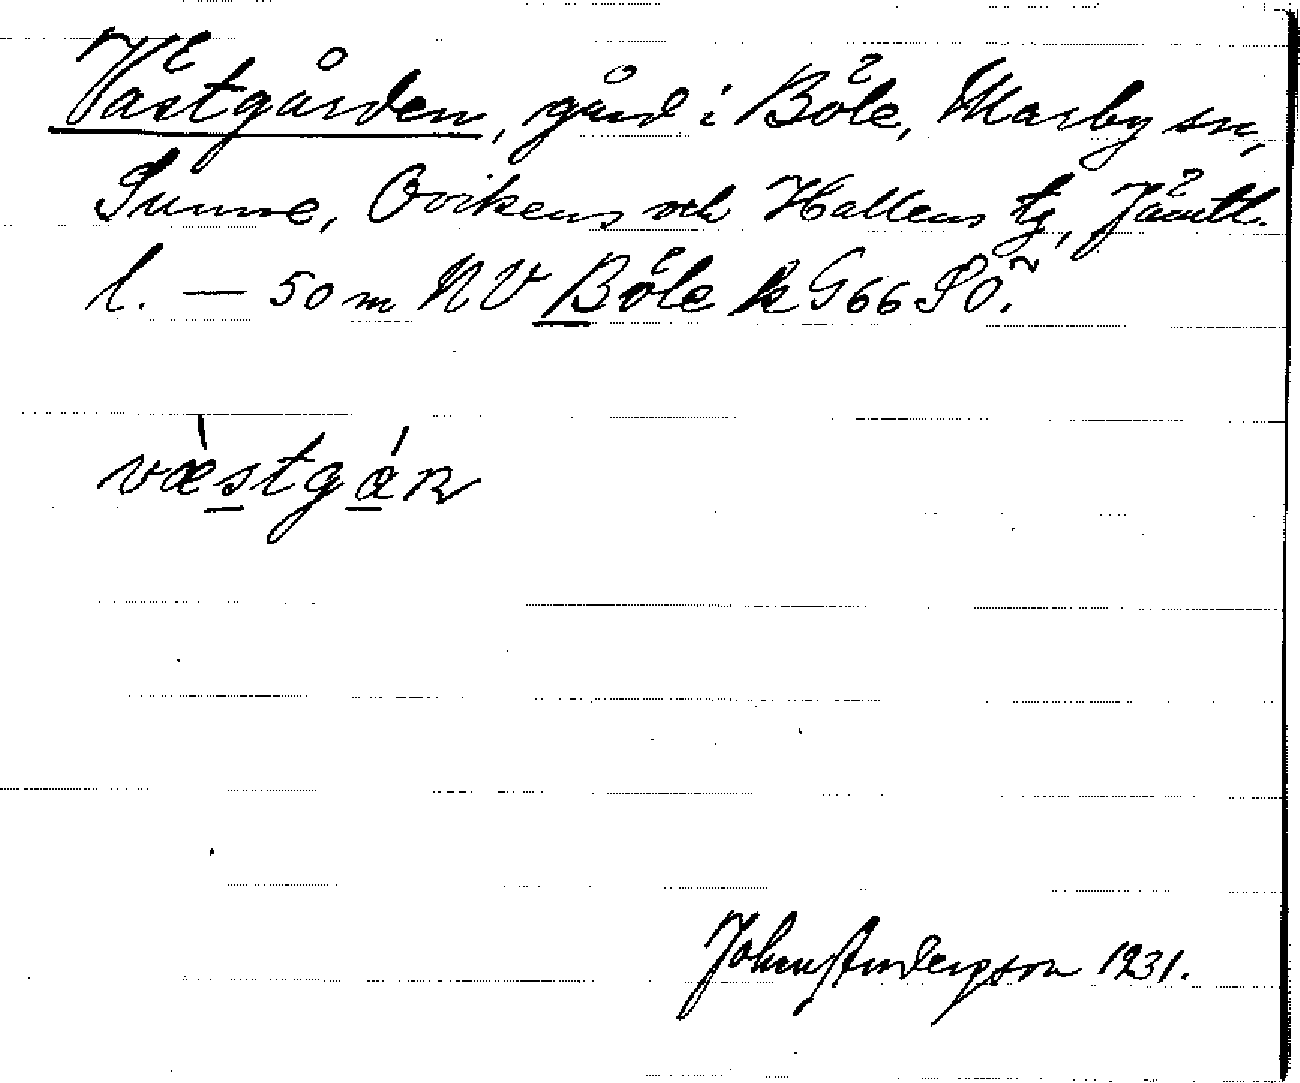 Västgården, gård i Böle, Marby sn,
Sunne, Ovikens och Hallens tg, Jämtl.
l. — 50 m NV Böle k G66 SÖ.
væstgáɴ
John Anderson 1931.